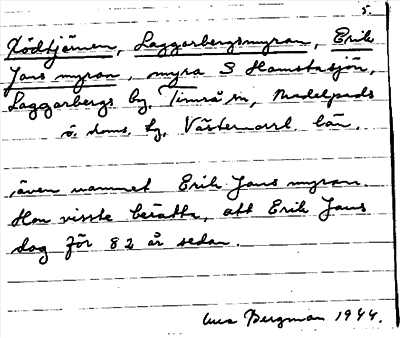 5.
Rödtjärnen, Laggarbergsmyran, Erik
Jans myran, myra S Hamstasjön,
Laggarbergs by, Timrå sn, Medelpads
ö. doms. by, Västernorrl. län.
även namnet Erik Jans myran.
Han visste berätta, att Erik Jans
dog för 82 år sedan.
Bergman 1944.